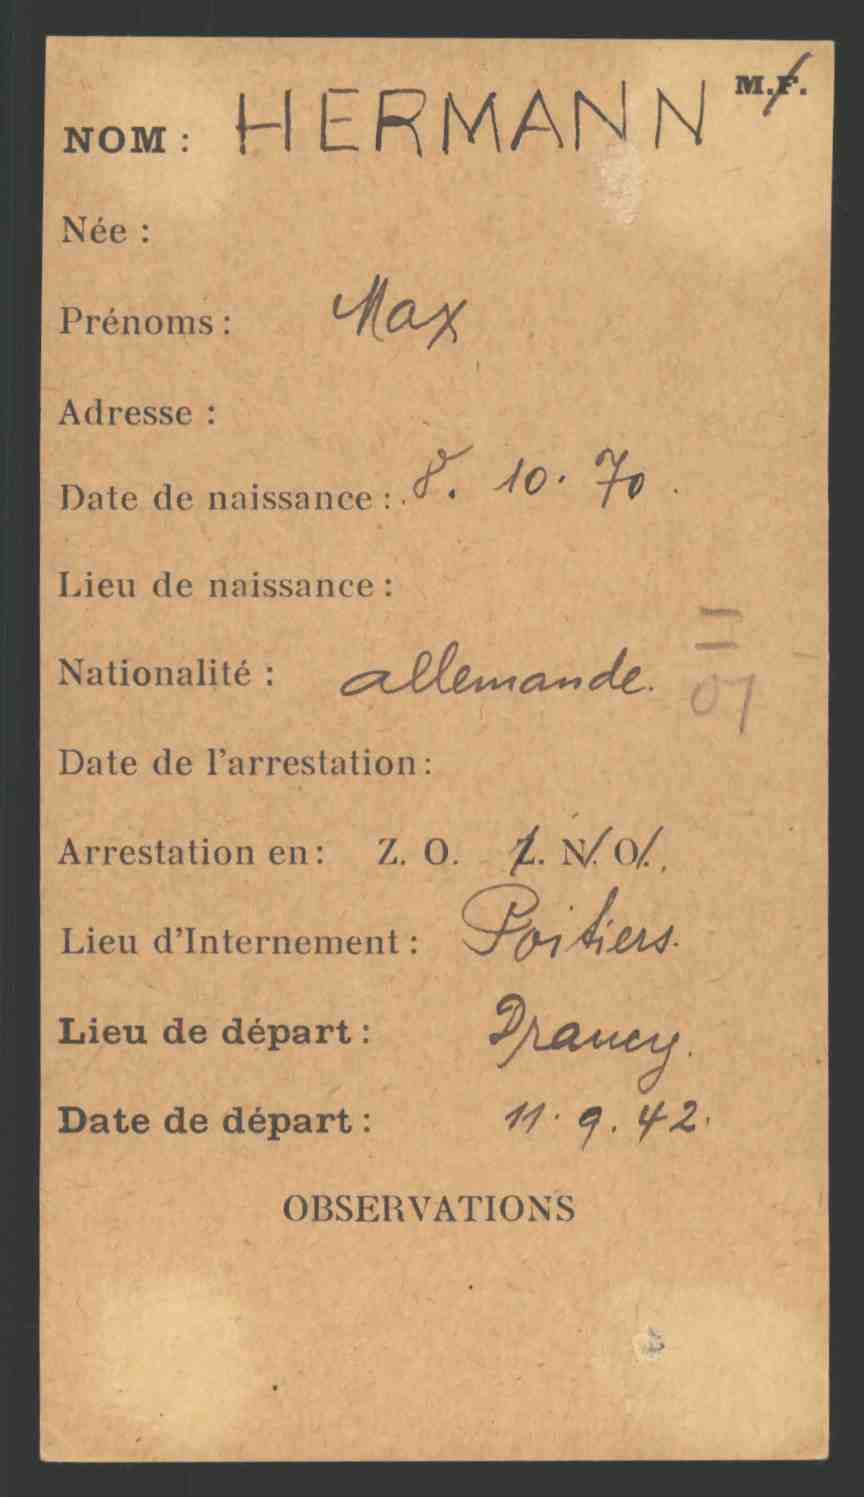 NOM : HERMANN M.F.
Née :
Prénoms : Max
Adresse :
Date de naissance : 8. 10. 70.
Lieu de naissance :
Nationalité : allemande.
07
Date de l'arrestation :
Arrestation en : Z. O. Z. N. O.
Lieu d'Internement : Poitiers.
Lieu de départ : Drancy.
Date de départ : 11. 9. 42.
OBSERVATIONS